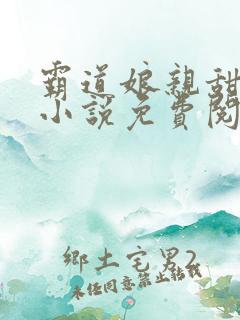 霸道娘親甜
小說免費閱
鄉土宅男2
未经同意禁止转载